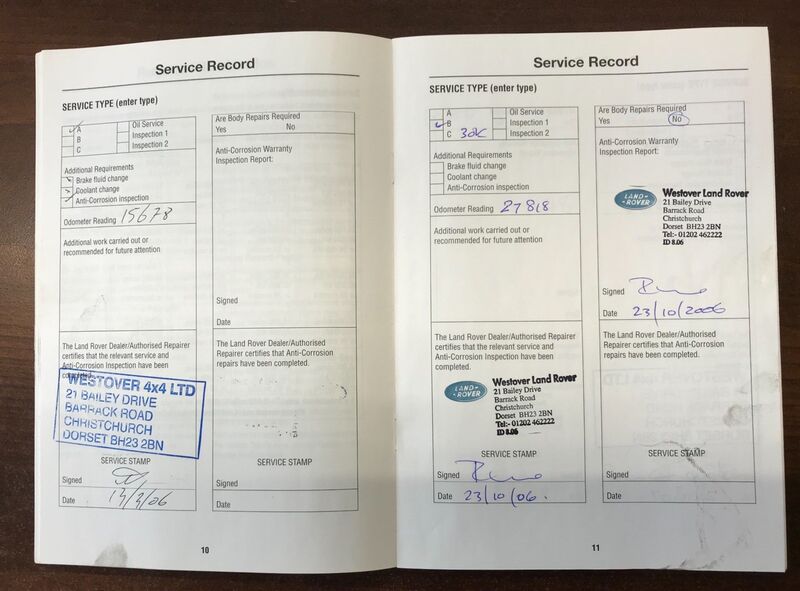 Service Record
SERVICE TYPE (enter type)
A
B
C
Oil Service
Inspection 1
Inspection 2
Additional Requirements
Brake fluid change
Coolant change
Anti-Corrosion inspection
Odometer Reading 15678
Additional work carried out or
recommended for future attention
The Land Rover Dealer/Authorised Repairer
certifies that the relevant service and
Anti-Corrosion Inspection have been
completed.
WESTOVER 4x4 LTD
21 BAILEY DRIVE
BARRACK ROAD
CHRISTCHURCH
DORSET BH23 2BN
SERVICE STAMP
Signed
Date 13/3/06
Are Body Repairs Required
Yes No
Anti-Corrosion Warranty
Inspection Report:
Signed
Date
The Land Rover Dealer/Authorised
Repairer certifies that Anti-Corrosion
repairs have been completed.
SERVICE STAMP
Signed
Date
10
Service Record
SERVICE TYPE (enter type)
A
B
C 30K
Oil Service
Inspection 1
Inspection 2
Additional Requirements
Brake fluid change
Coolant change
Anti-Corrosion inspection
Odometer Reading 27818
Additional work carried out or
recommended for future attention
The Land Rover Dealer/Authorised Repairer
certifies that the relevant service and
Anti-Corrosion Inspection have been
completed.
LAND-
ROVER
Westover Land Rover
21 Bailey Drive
Barrack Road
Christchurch
Dorset BH23 2BN
Tel:- 01202 462222
ID 8.06
SERVICE STAMP
Signed
Date 23/10/06.
Are Body Repairs Required
Yes No
Anti-Corrosion Warranty
Inspection Report:
LAND-
ROVER
Westover Land Rover
21 Bailey Drive
Barrack Road
Christchurch
Dorset BH23 2BN
Tel:- 01202 462222
ID 8.06
Signed
Date 23/10/2006
The Land Rover Dealer/Authorised
Repairer certifies that Anti-Corrosion
repairs have been completed.
SERVICE STAMP
Signed
Date
11